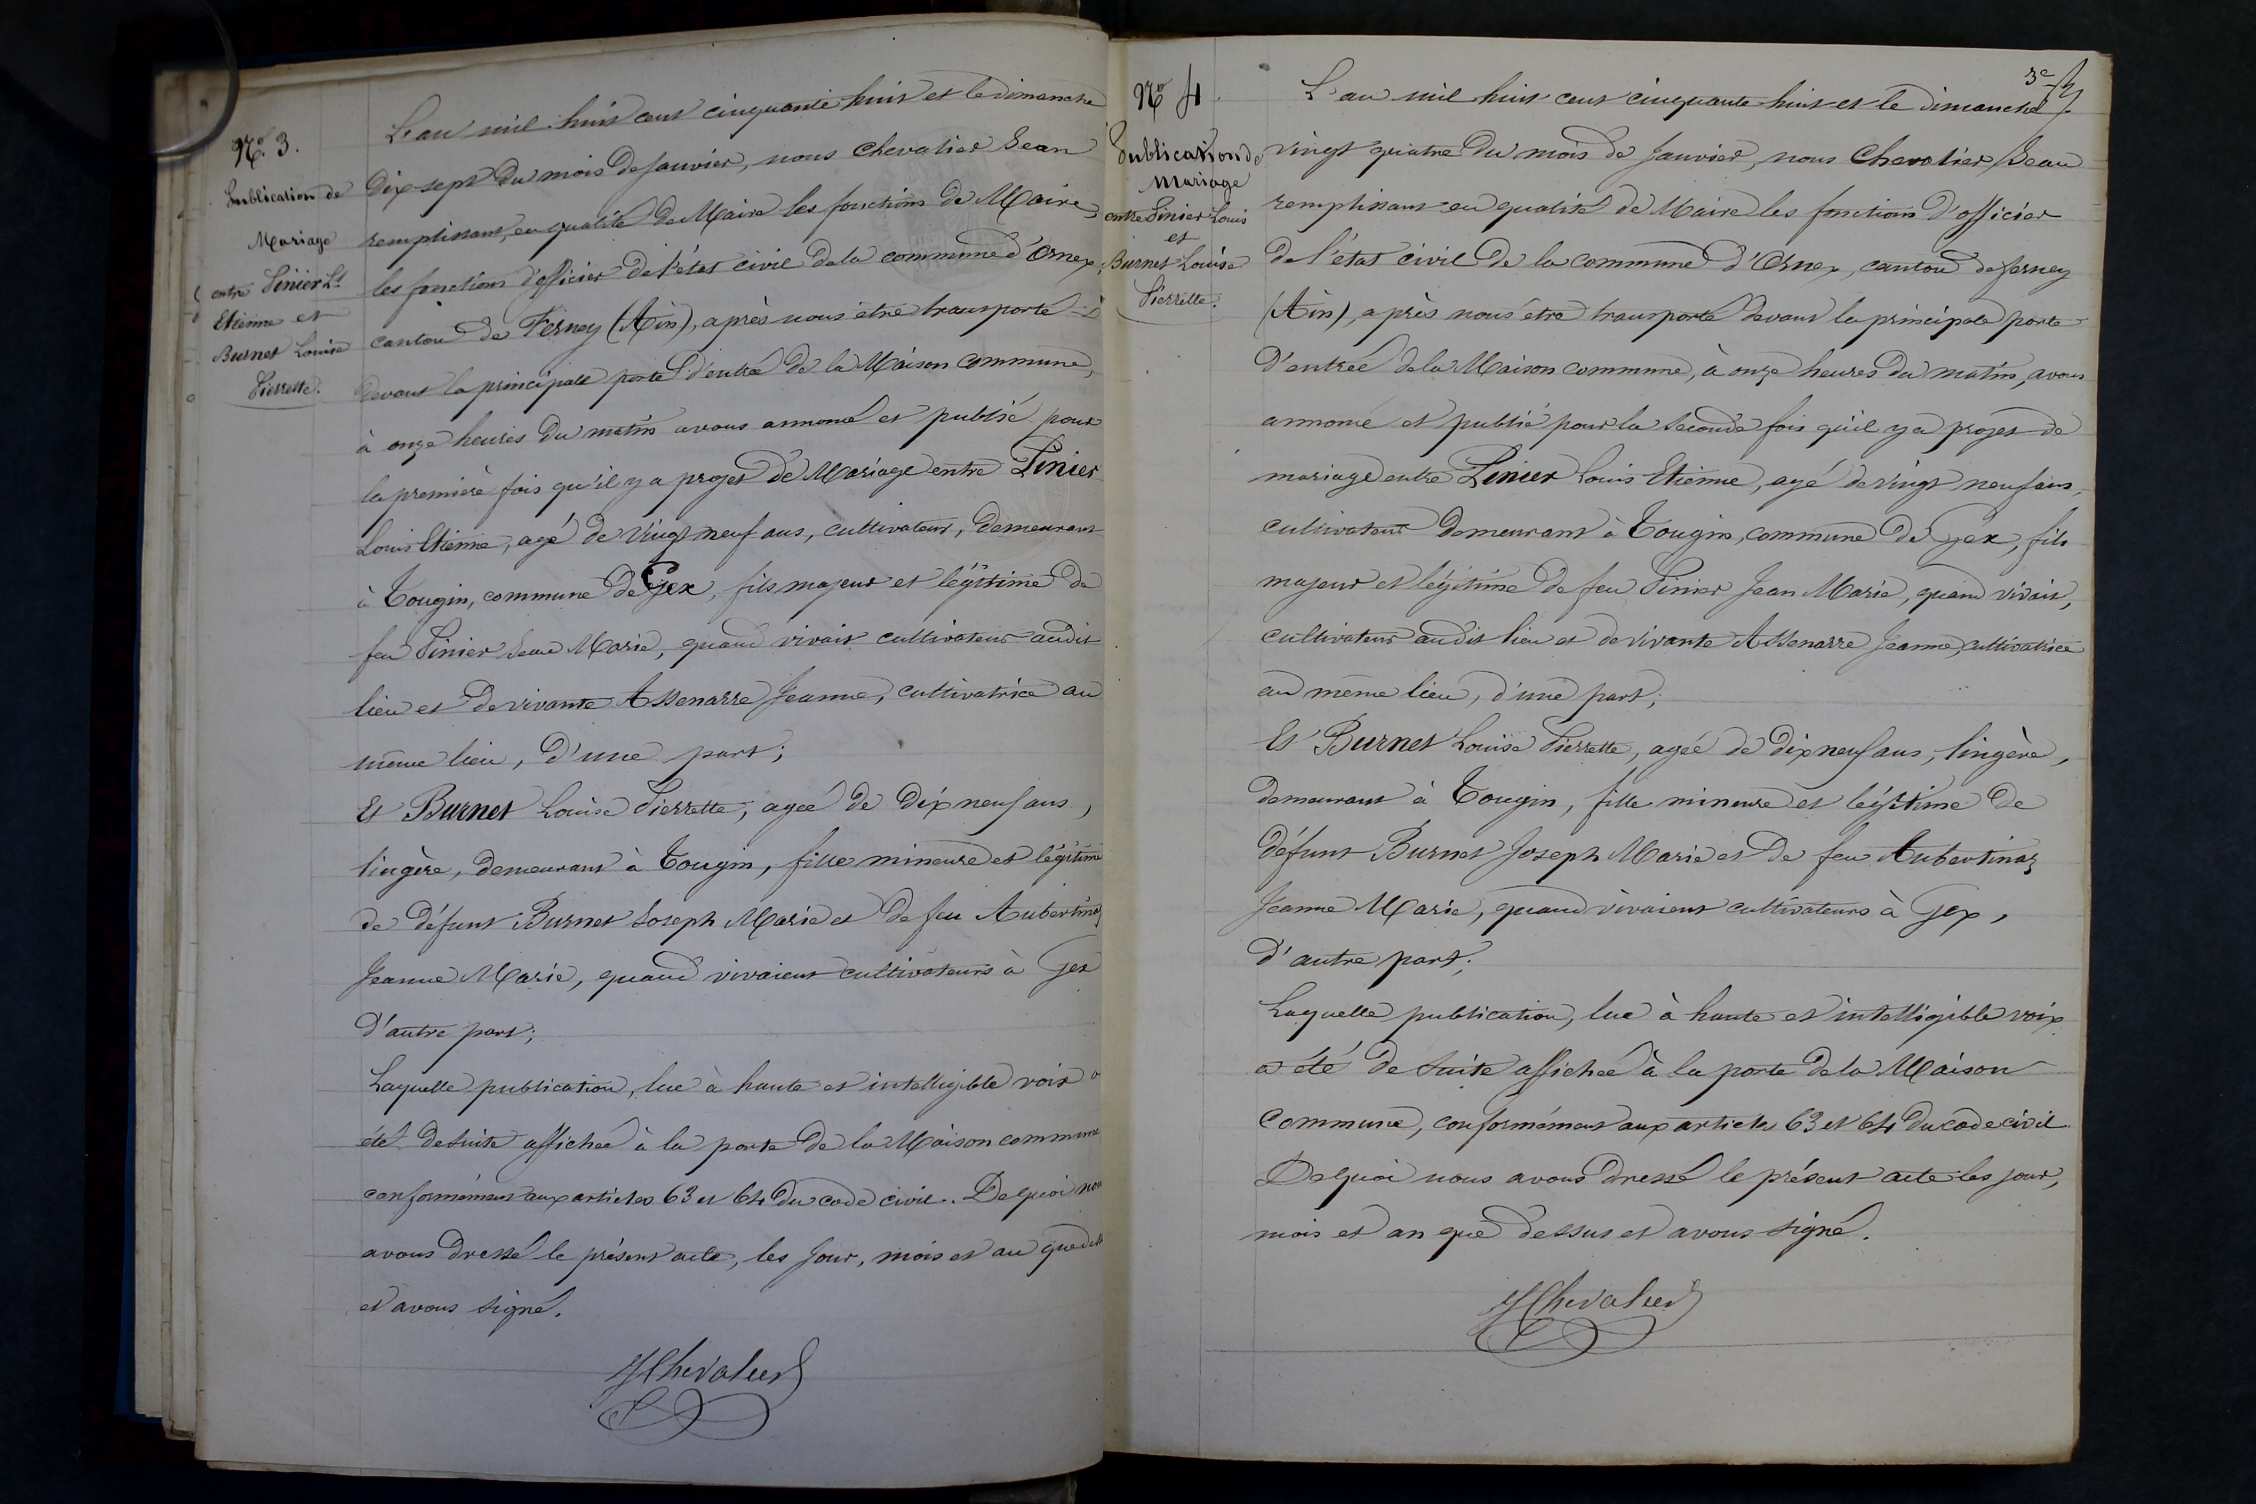 No. 3.
Publication de
Mariage
entre Pinier Ls
Etienne et
Burnet Louise
Pierrette.
L'an mil huit cent cinquante huit et le dimanche
dix sept du mois de Janvier, nous Chevalier Jean
remplissant, en qualité de Maire les fonctions de Maire,
les fonctions d'officier de l'état civil de la commune d'Ornex,
canton de Ferney (Ain), après nous être transporté
devant la principale porte d'entrée de la Maison commune,
à onze heures du matin avons annoncé et publié pour
la première fois qu'il y a projet de Mariage entre Pinier
Louis Etienne, agé de vingt neuf ans, cultivateur, demeurant
à Tougin, commune de Gex, fils majeur et légitime de
feu Pinier Jean Marie, quand vivait cultivateur audit
lieu et de vivante Assenarre Jeanne, cultivatrice au
même lieu, d'une part;
Et Burnet Louise Pierrette, agée de dix neuf ans,
lingère, demeurant à Tougin, fille mineure et légitime
de défunt Burnet Joseph Marie et de feu Aubertinaz
Jeanne Marie, quand vivaient cultivateurs à Gex
d'autre part;
Laquelle publication, lue à haute et intelligible voix a
été de suite affichée à la porte de la Maison commune
conformément aux articles 63 et 64 du code civil. De quoi nous
avons dressé le présent acte, les jour, mois et an que dess
et avons signé.
J Chevalier
No 4
Publication de
Mariage
entre Pinier Louis
et
Burnet Louise
Pierrette.
3e
L'an mil huit cent cinquante huit et le dimanche
vingt quatre du mois de Janvier, nous Chevalier Jean
remplissant en qualité de Maire les fonctions d'officier
de l'état civil de la commune d'Ornex, canton de Ferney
(Ain), après nous être transporté devant la principale porte
d'entrée de la Maison commune, à onze heures du matin, avons
annoncé et publié pour la seconde fois qu'il y a projet de
mariage entre Pinier Louis Etienne, agé de vingt neuf ans,
cultivateur demeurant à Tougin, commune de Gex, fils
majeur et légitime de feu Pinier Jean Marie, quand vivait,
cultivateur audit lieu et de vivante Assenarre Jeanne, cultivatrice
au même lieu, d'une part;
Et Burnet Louise Pierrette, agée de dix neuf ans, lingère,
demeurant à Tougin, fille mineure et légitime de
défunt Burnet Joseph Marie et de feu Aubertinaz
Jeanne Marie, quand vivaient cultivateurs à Gex,
d'autre part;
Laquelle publication, lue à haute et intelligible voix
a été de suite affichée à la porte de la Maison
Commune, conformément aux articles 63 et 64 du code civil.
De quoi nous avons dressé le présent acte les jour,
mois et an que dessus et avons signé.
J Chevalier